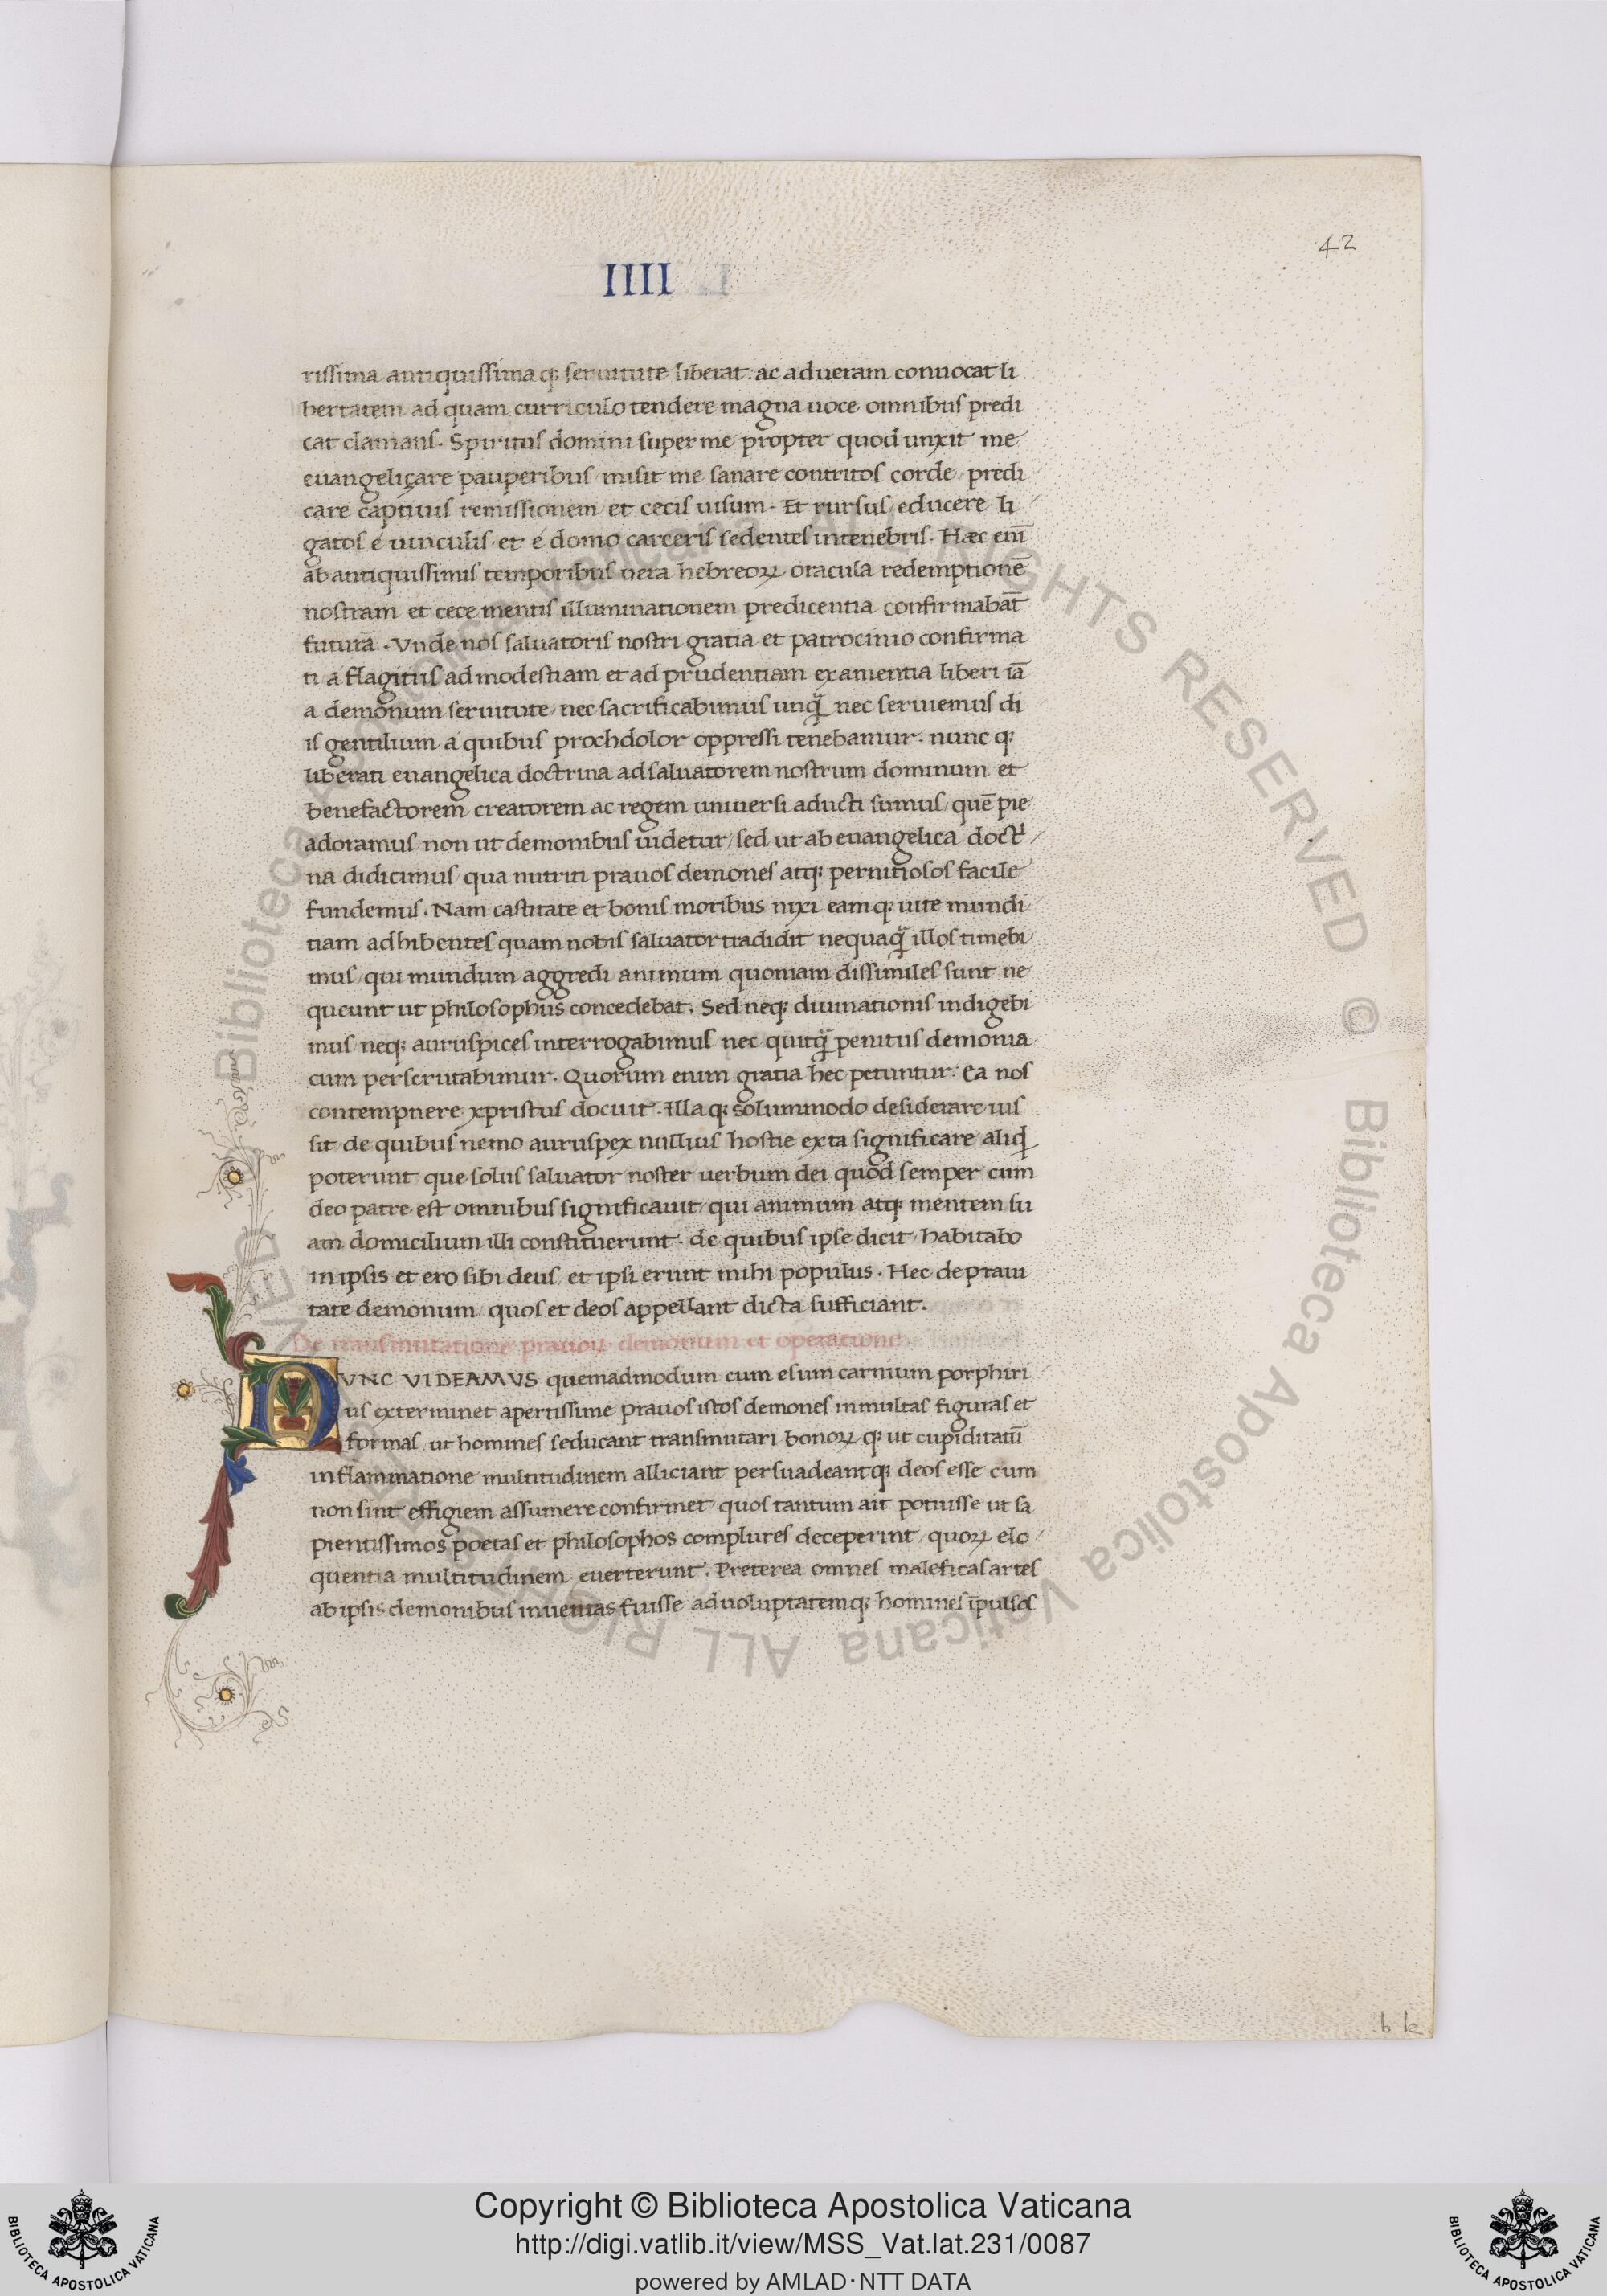 42
IIII
rissima antiquissima q; seruitute liberat. ac ad ueram conuocat li
bertatem ad quam curriculo tendere magna uoce omnibus predi
cat clamans. Spiritus domini super me propter quod unxit me
euangeliçare pauperibus misit me sanare contritos corde predi
care captiuis remissionem et cecis uisum. Et rursus educere li
gatos é uinculis et é domo carceris sedentes in tenebris. Haec eni̅
ab antiquissimis temporibus uera hebreoꝝ oracula redemptione̅
nostram et cece mentis illuminationem predicentia confirmaba̅t
futura̅. Vnde nos saluatoris nostri gratia et patrocinio confirma
ti á flagitiis ad modestiam et ad prudentiam ex amentia liberi ia̅
a demonum seruitute nec sacrificabimus unq̃ nec seruiemus di
is gentilium á quibus prochdolor oppressi tenebamur. nunc q;
liberati euangelica doctrina ad saluatorem nostrum dominum et
benefactorem creatorem ac regem uniuersi aducti sumus que̅ pie
adoramus non ut demonibus uidetur, sed ut ab euangelica doctⁱ
na didicimus qua nutriti prauos demones atq; pernitiosos facile
fundemus. Nam castitate et bonis moribus nixi eam q; uite mundi
tiam adhibentes quam nobis saluator tradidit nequaq̃ illos timebi
mus qui mundum aggredi animum quoniam dissimiles sunt ne
queunt ut philosophus concedebat. Sed neq; diuinationis indigebi
mus neq; auruspices interrogabimus nec quitq̃ penitus demonia
cum perscrutabimur. Quorum enim gratia hec petuntur. Ea nos
contempnere xpristus docuit. Illa q; solummodo desiderare ius
sit de quibus nemo auruspex nullius hostie exta significare aliq̇
poterunt que solus saluator noster uerbum dei quod semper cum
deo patre est omnibus significauit qui animum atq; mentem su
am domicilium illi constituerunt. de quibus ipse dicit, habitabo
in ipsis et ero sibi deus et ipsi erunt mihi populus. Hec de praui
tate demonum quos et deos appellant dicta sufficiant.
De transmutatione prauoꝝ demonum et operatione
NVNC VIDEAMVS quemadmodum cum esum carnium porphiri
us exterminet apertissime prauos istos demones in multas figuras et
formas ut homines seducant transmutari bonoꝝ q; ut cupiditatu̅
inflammatione multitudinem alliciant persuadeantq; deos esse cum
non sint effigiem assumere confirmet quos tantum ait potuisse ut sa
pientissimos poetas et philosophos complures deceperint quoꝝ elo
quentia multitudinem euerterunt. Preterea omnes maleficas artes
ab ipsis demonibus inuentas fuisse ad uoluptatemq; homines i̅pulsos
b k
Biblioteca Apostolica Vaticana ALL RIGHTS RESERVED ©
Copyright © Biblioteca Apostolica Vaticana
http://digi.vatlib.it/view/MSS_Vat.lat.231/0087
powered by AMLAD·NTT DATA
BIBLIOTECA APOSTOLICA VATICANA
BIBLIOTECA APOSTOLICA VATICANA